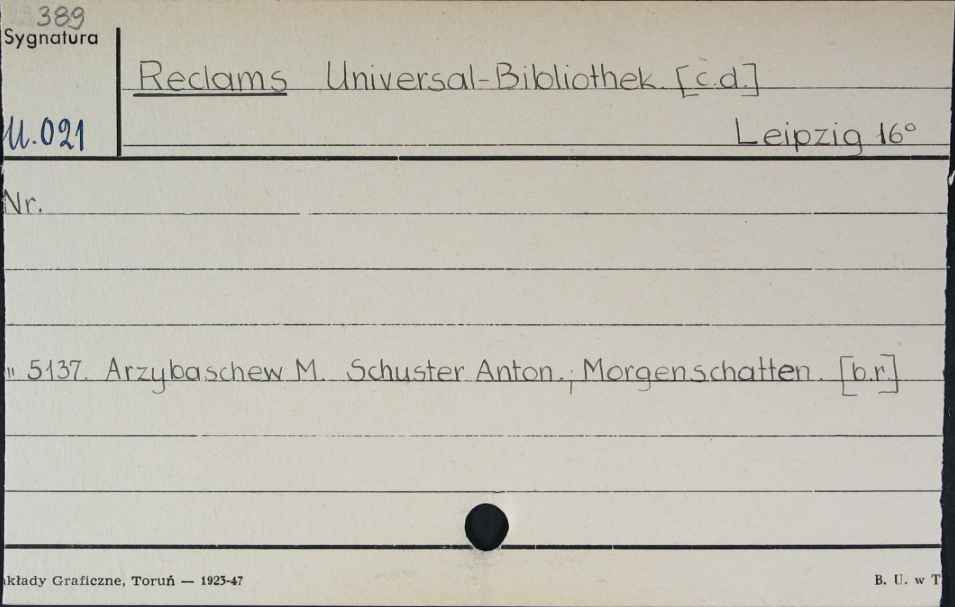 389
Sygnatura
Reclams Universal-Bibliothek. [c.d.]
U.021
Leipzig 16°
Nr.
" 5137. Arzybaschew M. Schuster Anton.; Morgenschatten. [b.r.]
kłady Graficzne, Toruń — 1923-47
B. U. w T